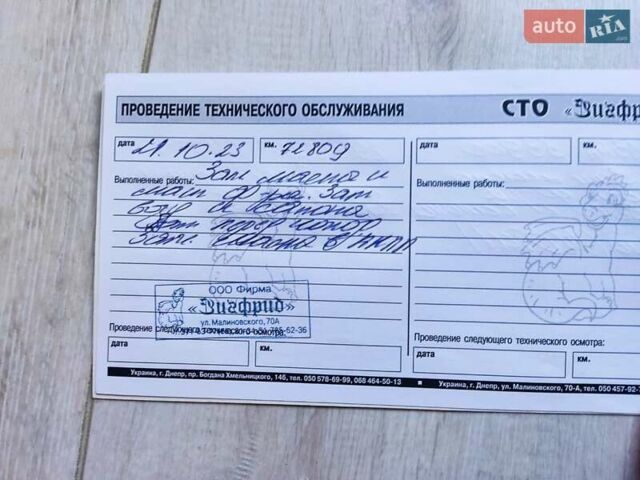 auto RIA.com
ПРОВЕДЕНИЕ ТЕХНИЧЕСКОГО ОБСЛУЖИВАНИЯ СТО «Зигфрид
дата 21.10.23 км. 72809
дата км.
Выполненные работы: Зам масла и
масл ф-ра. Зам
возд и салона
Зам. масла в АКПП
Выполненные работы:
ООО Фирма
«Зигфрид»
ул. Малиновского, 70А
Проведение следующего технического осмотра:
дата км.
Проведение следующего технического осмотра:
дата км.
Украина, г. Днепр, пр. Богдана Хмельницкого, 146, тел. 050 578-69-99, 068 464-50-13
Украина, г. Днепр, ул. Малиновского, 70-А, тел. 050 457-92-